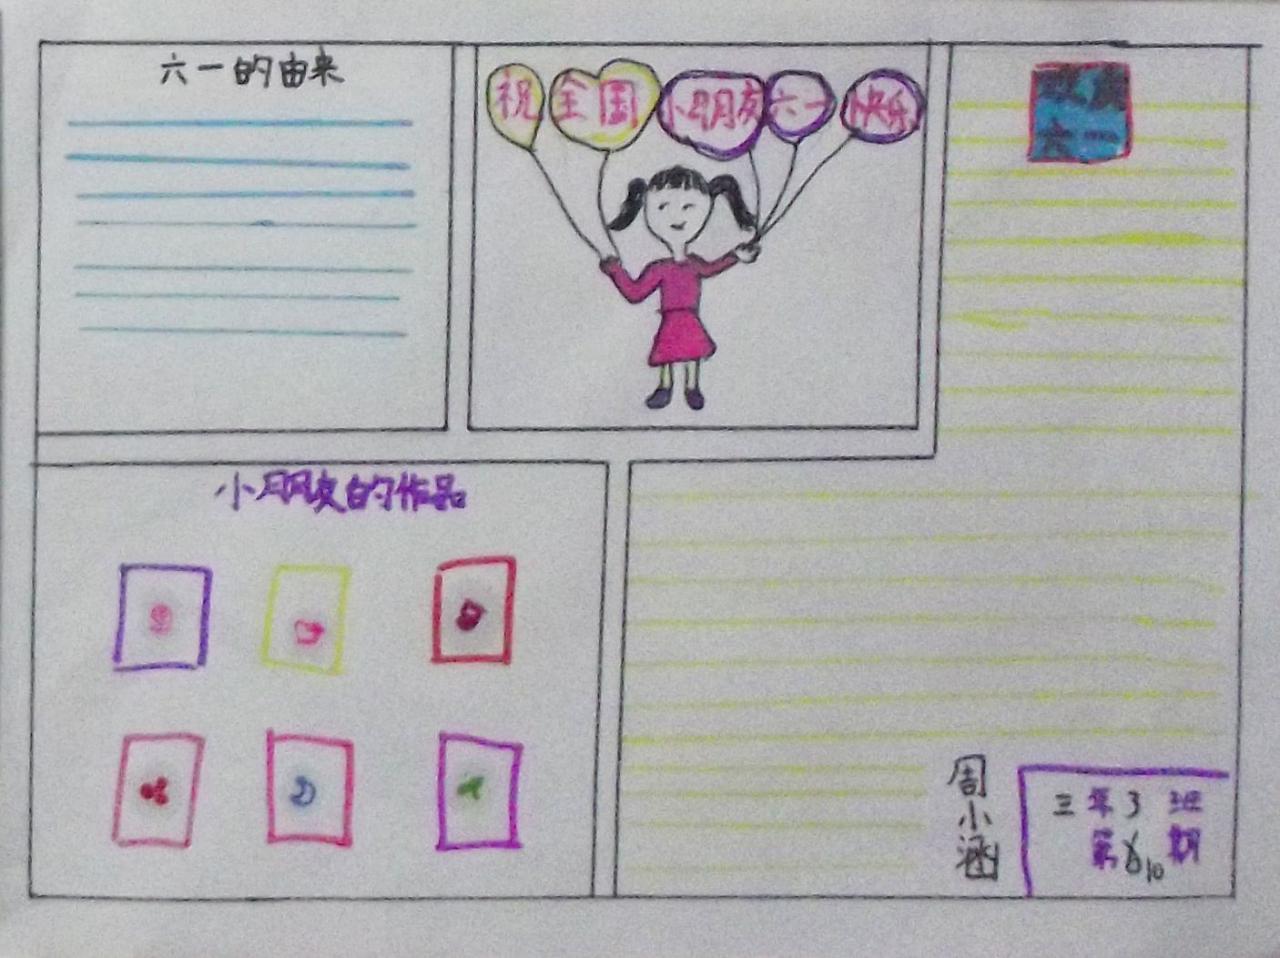 六一的由来
祝全国小朋友六一快乐
六一
小朋友的作品
周小涵
三年3班
第10期